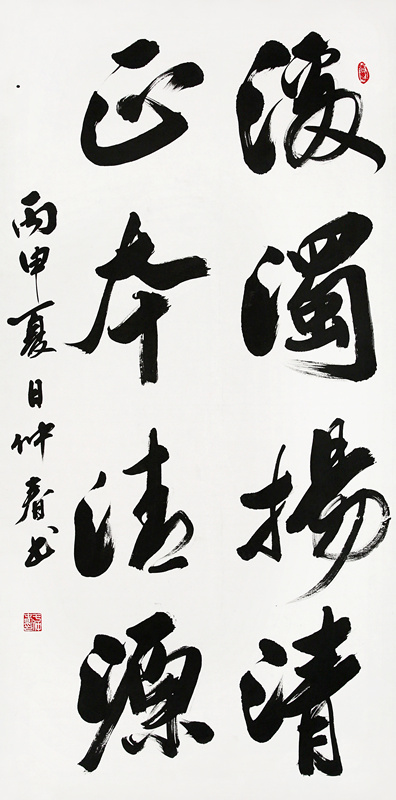 激濁揚清
正本清源
丙申夏日仲春书